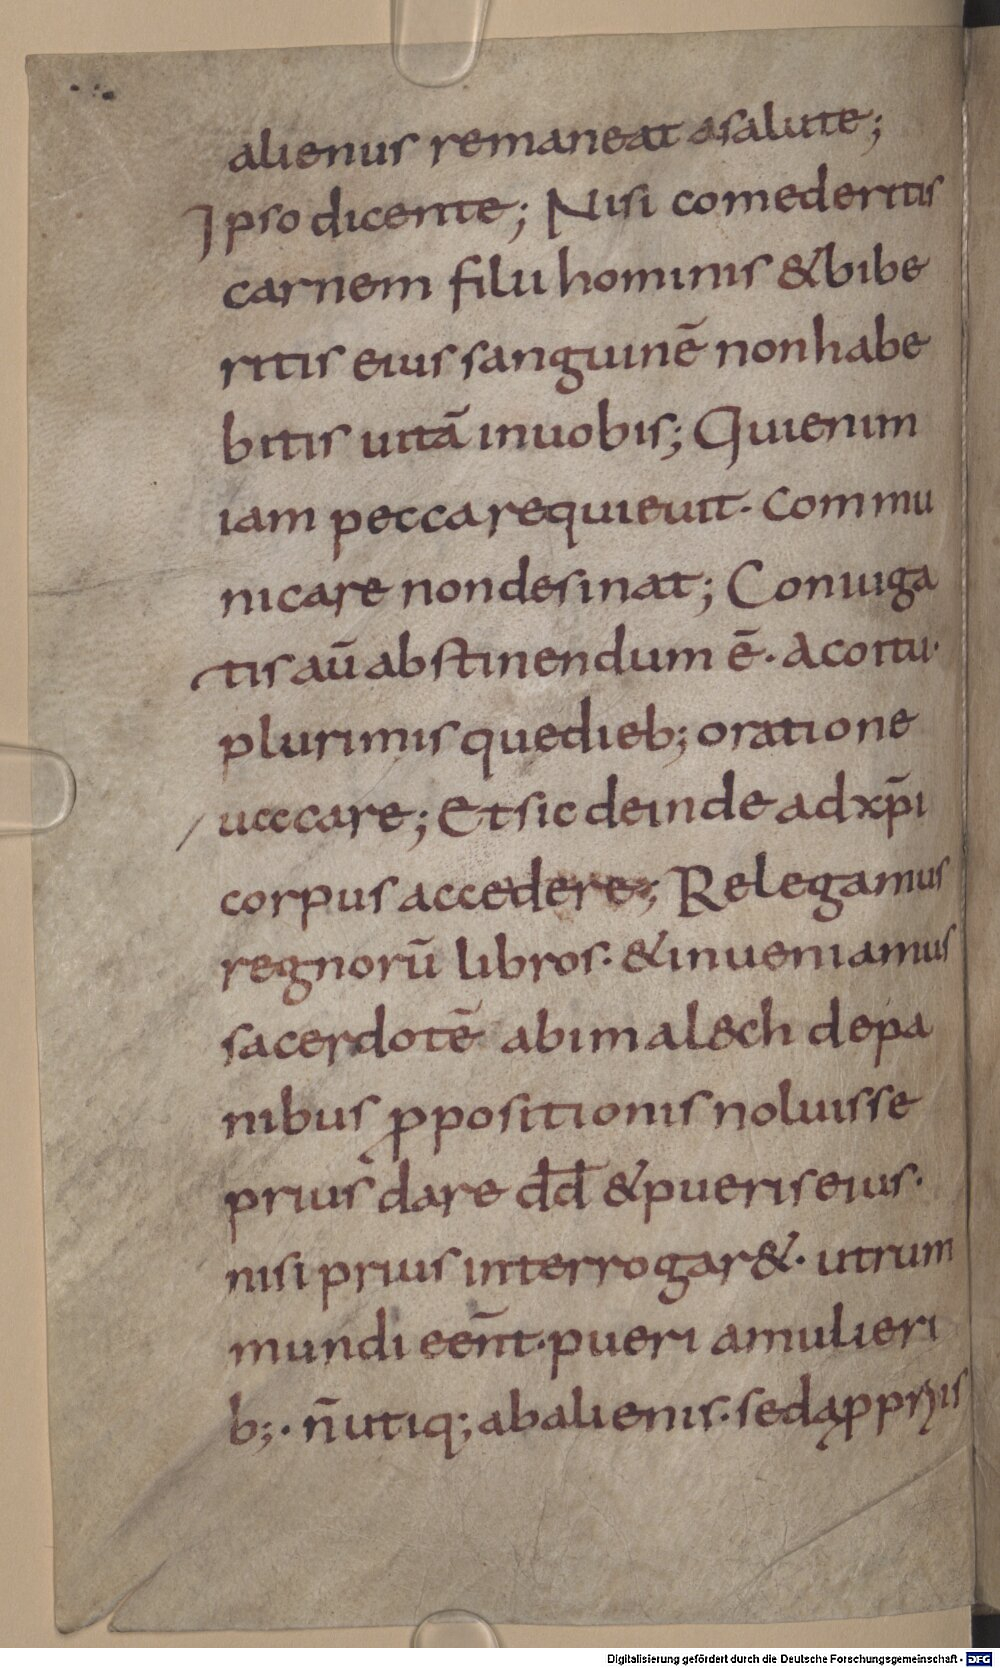 alienus remaneat asalute;
Ipso dicente; Nisi comederitis
carnem filii hominis &bibe
ritis eius sanguinē nonhabe
bitis uitā inuobis; Quienim
iam peccarequieuit. Commu
nicare nondesinat; Coniuga
tis aū abstinendum ē. Acoitu.
plurimis quedieb; oratione
uaccare; Etsic deinde adxp̄i
corpus accedere; Relegamus
regnorū libros. &inueniamus
sacerdotē abimal&ch depa
nibus ꝓpositionis noluisse
prius dare dd̄ &pueriseius.
nisi prius interrogar&. utrum
mundi eēnt. pueri amulieri
b;. n̄utiq; abalienis. sedaꝓpriis
Digitalisierung gefördert durch die Deutsche Forschungsgemeinschaft - DFG